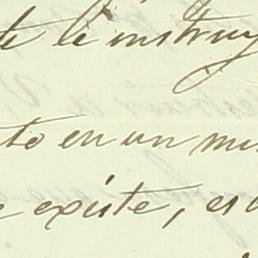 te le instruy
to en un mis
e existe, es